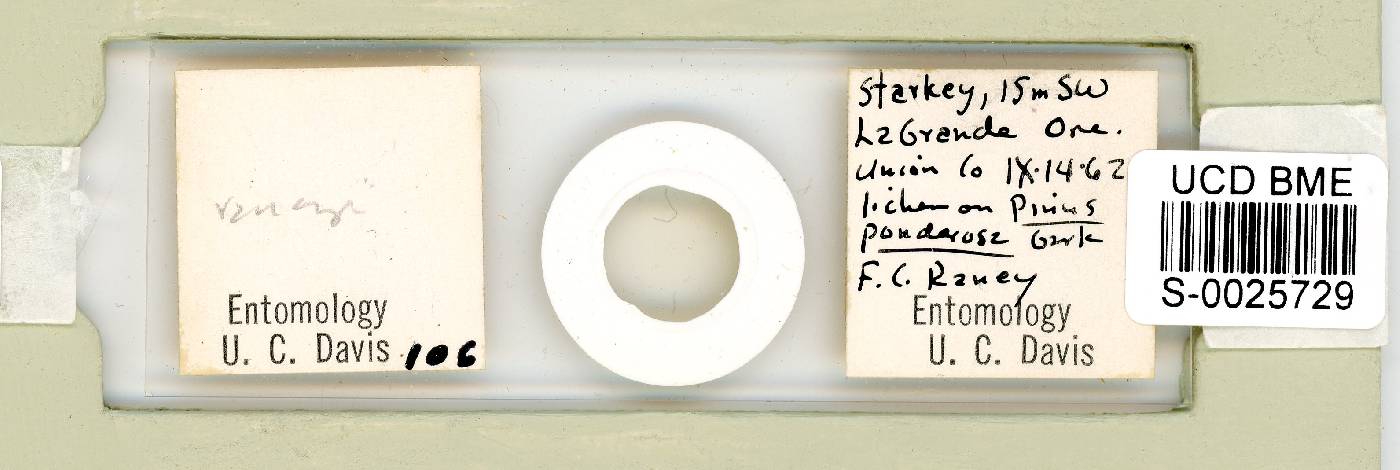 Entomology
U. C. Davis 106
Starkey, 15m SW
LaGrande Ore.
Union Co IX·14·62
lichen on Pinus
ponderosa bark
F. C. Raney
Entomology
U. C. Davis
UCD BME
S-0025729